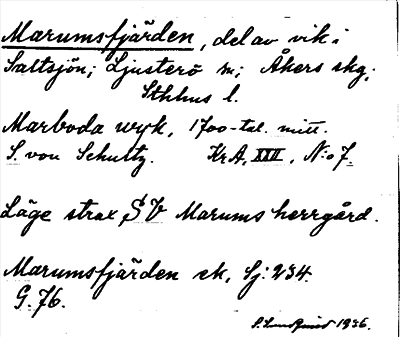 Marumsfjärden, del av vik i
Saltsjön; Ljusterö sn; Åkers skg;
Sthlms l.
Marboda wyk, 1700-tal. mitt.
S. von Schultz. KrA, XXX, N:o 7.
Läge strax SV Marums herrgård.
Marumsfjärden ek, Sj: 234.
G. 76.
S. Lundqvist 1936.